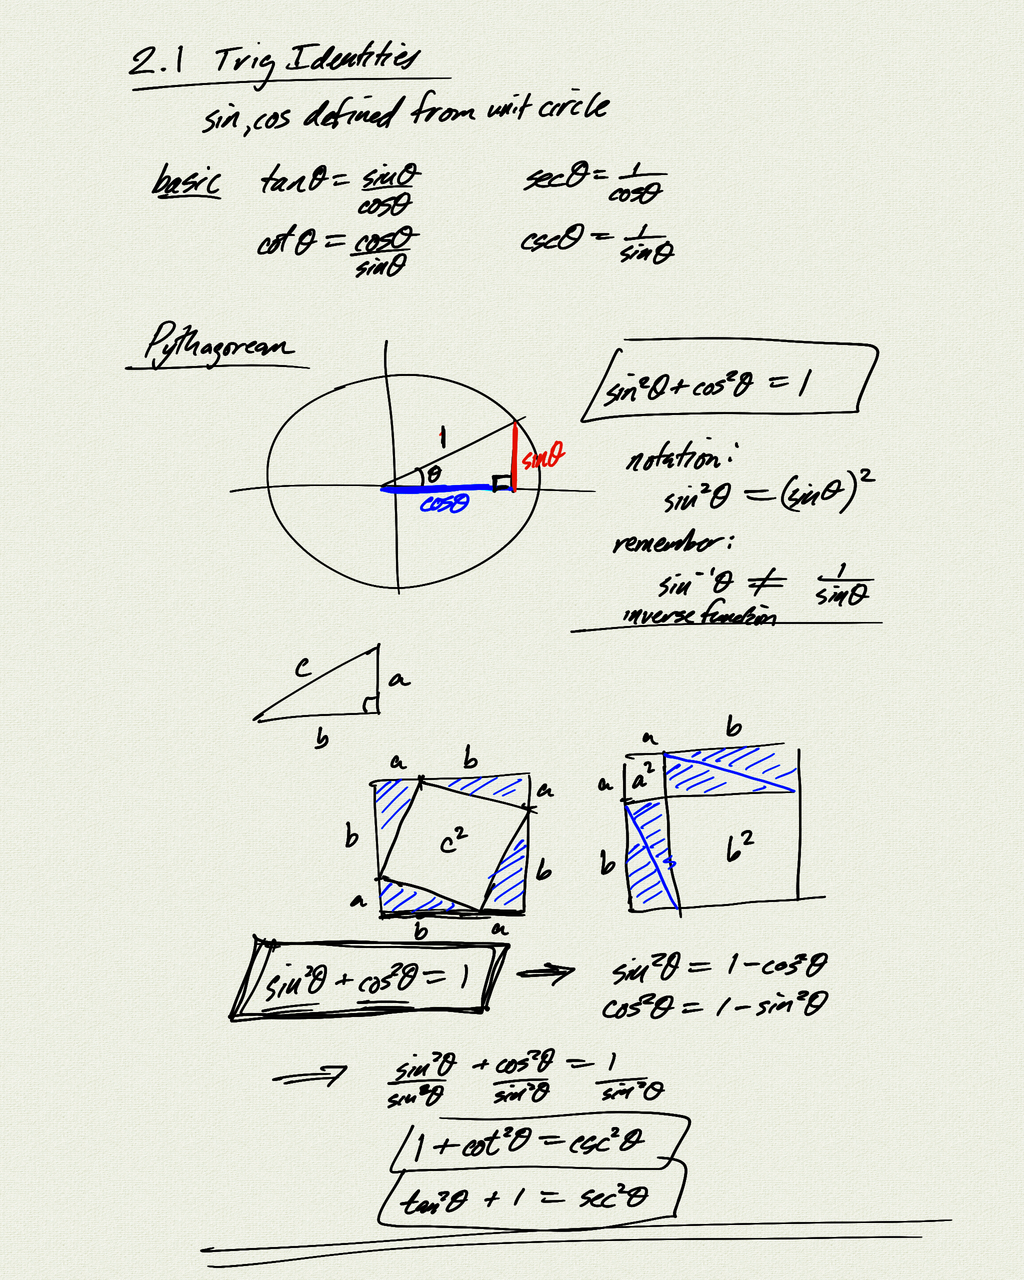 2.1 Trig Identities
sin, cos defined from unit circle
basic tanθ = sinθ/cosθ secθ = 1/cosθ
cotθ = cosθ/sinθ cscθ = 1/sinθ
Pythagorean
sin²θ + cos²θ = 1
1
θ
sinθ
cosθ
notation:
sin²θ = (sinθ)²
remember:
sin⁻¹θ ≠ 1/sinθ
inverse function
c
a
b
a b
a
b
c²
a
b
b a
a b
a
a²
b
b²
sin²θ + cos²θ = 1 → sin²θ = 1 - cos²θ
cos²θ = 1 - sin²θ
⇒ sin²θ/sin²θ + cos²θ/sin²θ = 1/sin²θ
1 + cot²θ = csc²θ
tan²θ + 1 = sec²θ